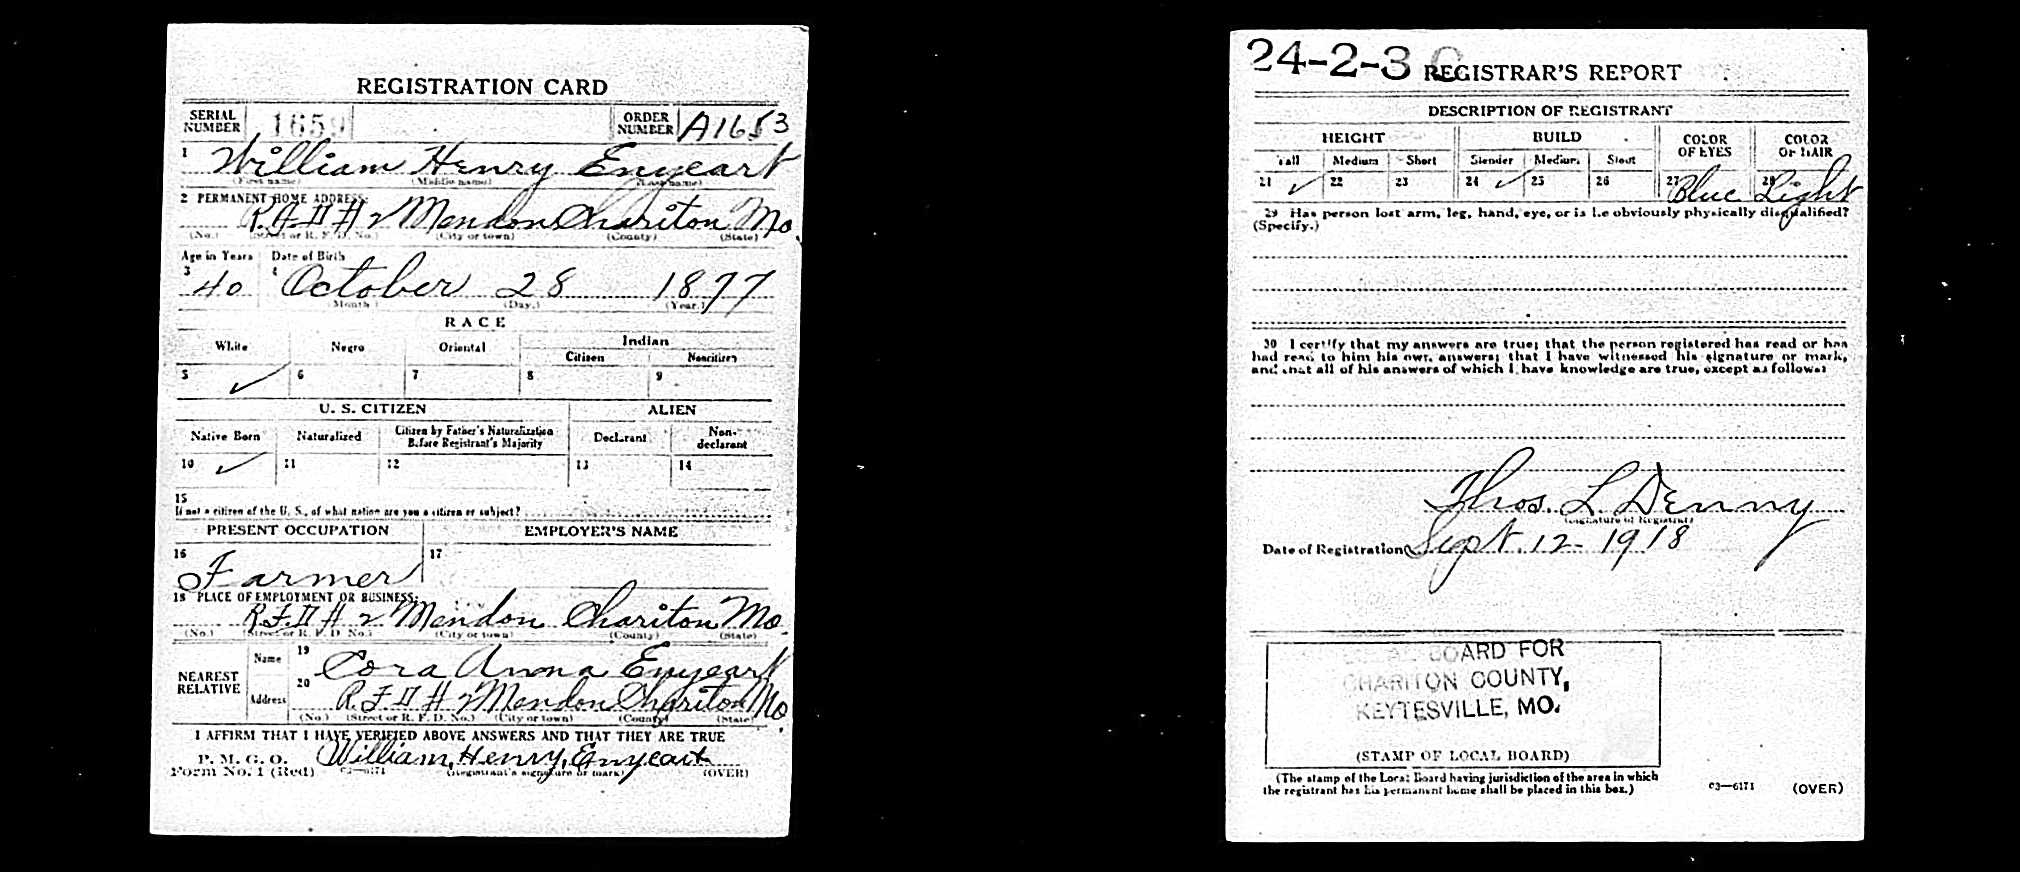 REGISTRATION CARD
SERIAL NUMBER 1659 ORDER NUMBER A1653
1 William Henry Enyeart
(First name) (Middle name) (Last name)
2 PERMANENT HOME ADDRESS:
R.F.D # 2 Mendon Chariton Mo.
(No.) (Street or R. F. D. No.) (City or town) (County) (State)
Age in Years Date of Birth
3 40 4 October 28 1877
(Month) (Day.) (Year.)
RACE
White Negro Oriental Indian
Citizen Noncitizen
5 ✓ 6 7 8 9
U. S. CITIZEN ALIEN
Native Born Naturalized Citizen by Father's Naturalization Before Registrant's Majority Declarant Non-declarant
10 ✓ 11 12 13 14
15
If not a citizen of the U. S., of what nation are you a citizen or subject?
PRESENT OCCUPATION EMPLOYER'S NAME
16 Farmer 17
18 PLACE OF EMPLOYMENT OR BUSINESS:
R.F.D # 2 Mendon Chariton Mo.
(No.) (Street or R. F. D. No.) (City or town) (County) (State)
NEAREST RELATIVE Name 19 Cora Anna Enyeart
Address 20 R.F.D # 2 Mendon Chariton Mo.
(No.) (Street or R. F. D. No.) (City or town) (County) (State)
I AFFIRM THAT I HAVE VERIFIED ABOVE ANSWERS AND THAT THEY ARE TRUE
P. M. G. O.
Form No. 1 (Red) 03—6171 William, Henry, Enyeart
(Registrant's signature or mark) (OVER)
24-2-3 C REGISTRAR'S REPORT
DESCRIPTION OF REGISTRANT
HEIGHT BUILD COLOR OF EYES COLOR OF HAIR
Tall Medium Short Slender Medium Stout
21 ✓ 22 23 24 ✓ 25 26 27 Blue 28 Light
29 Has person lost arm, leg, hand, eye, or is he obviously physically disqualified?
(Specify.)
30 I certify that my answers are true; that the person registered has read or has
had read to him his own answers; that I have witnessed his signature or mark,
and that all of his answers of which I have knowledge are true, except as follows:
Thos. L. Denny
(Signature of Registrar)
Date of Registration Sept. 12- 1918
LOCAL BOARD FOR
CHARITON COUNTY,
KEYTESVILLE, MO.
(STAMP OF LOCAL BOARD)
(The stamp of the Local Board having jurisdiction of the area in which
the registrant has his permanent home shall be placed in this box.)
03—6171 (OVER)